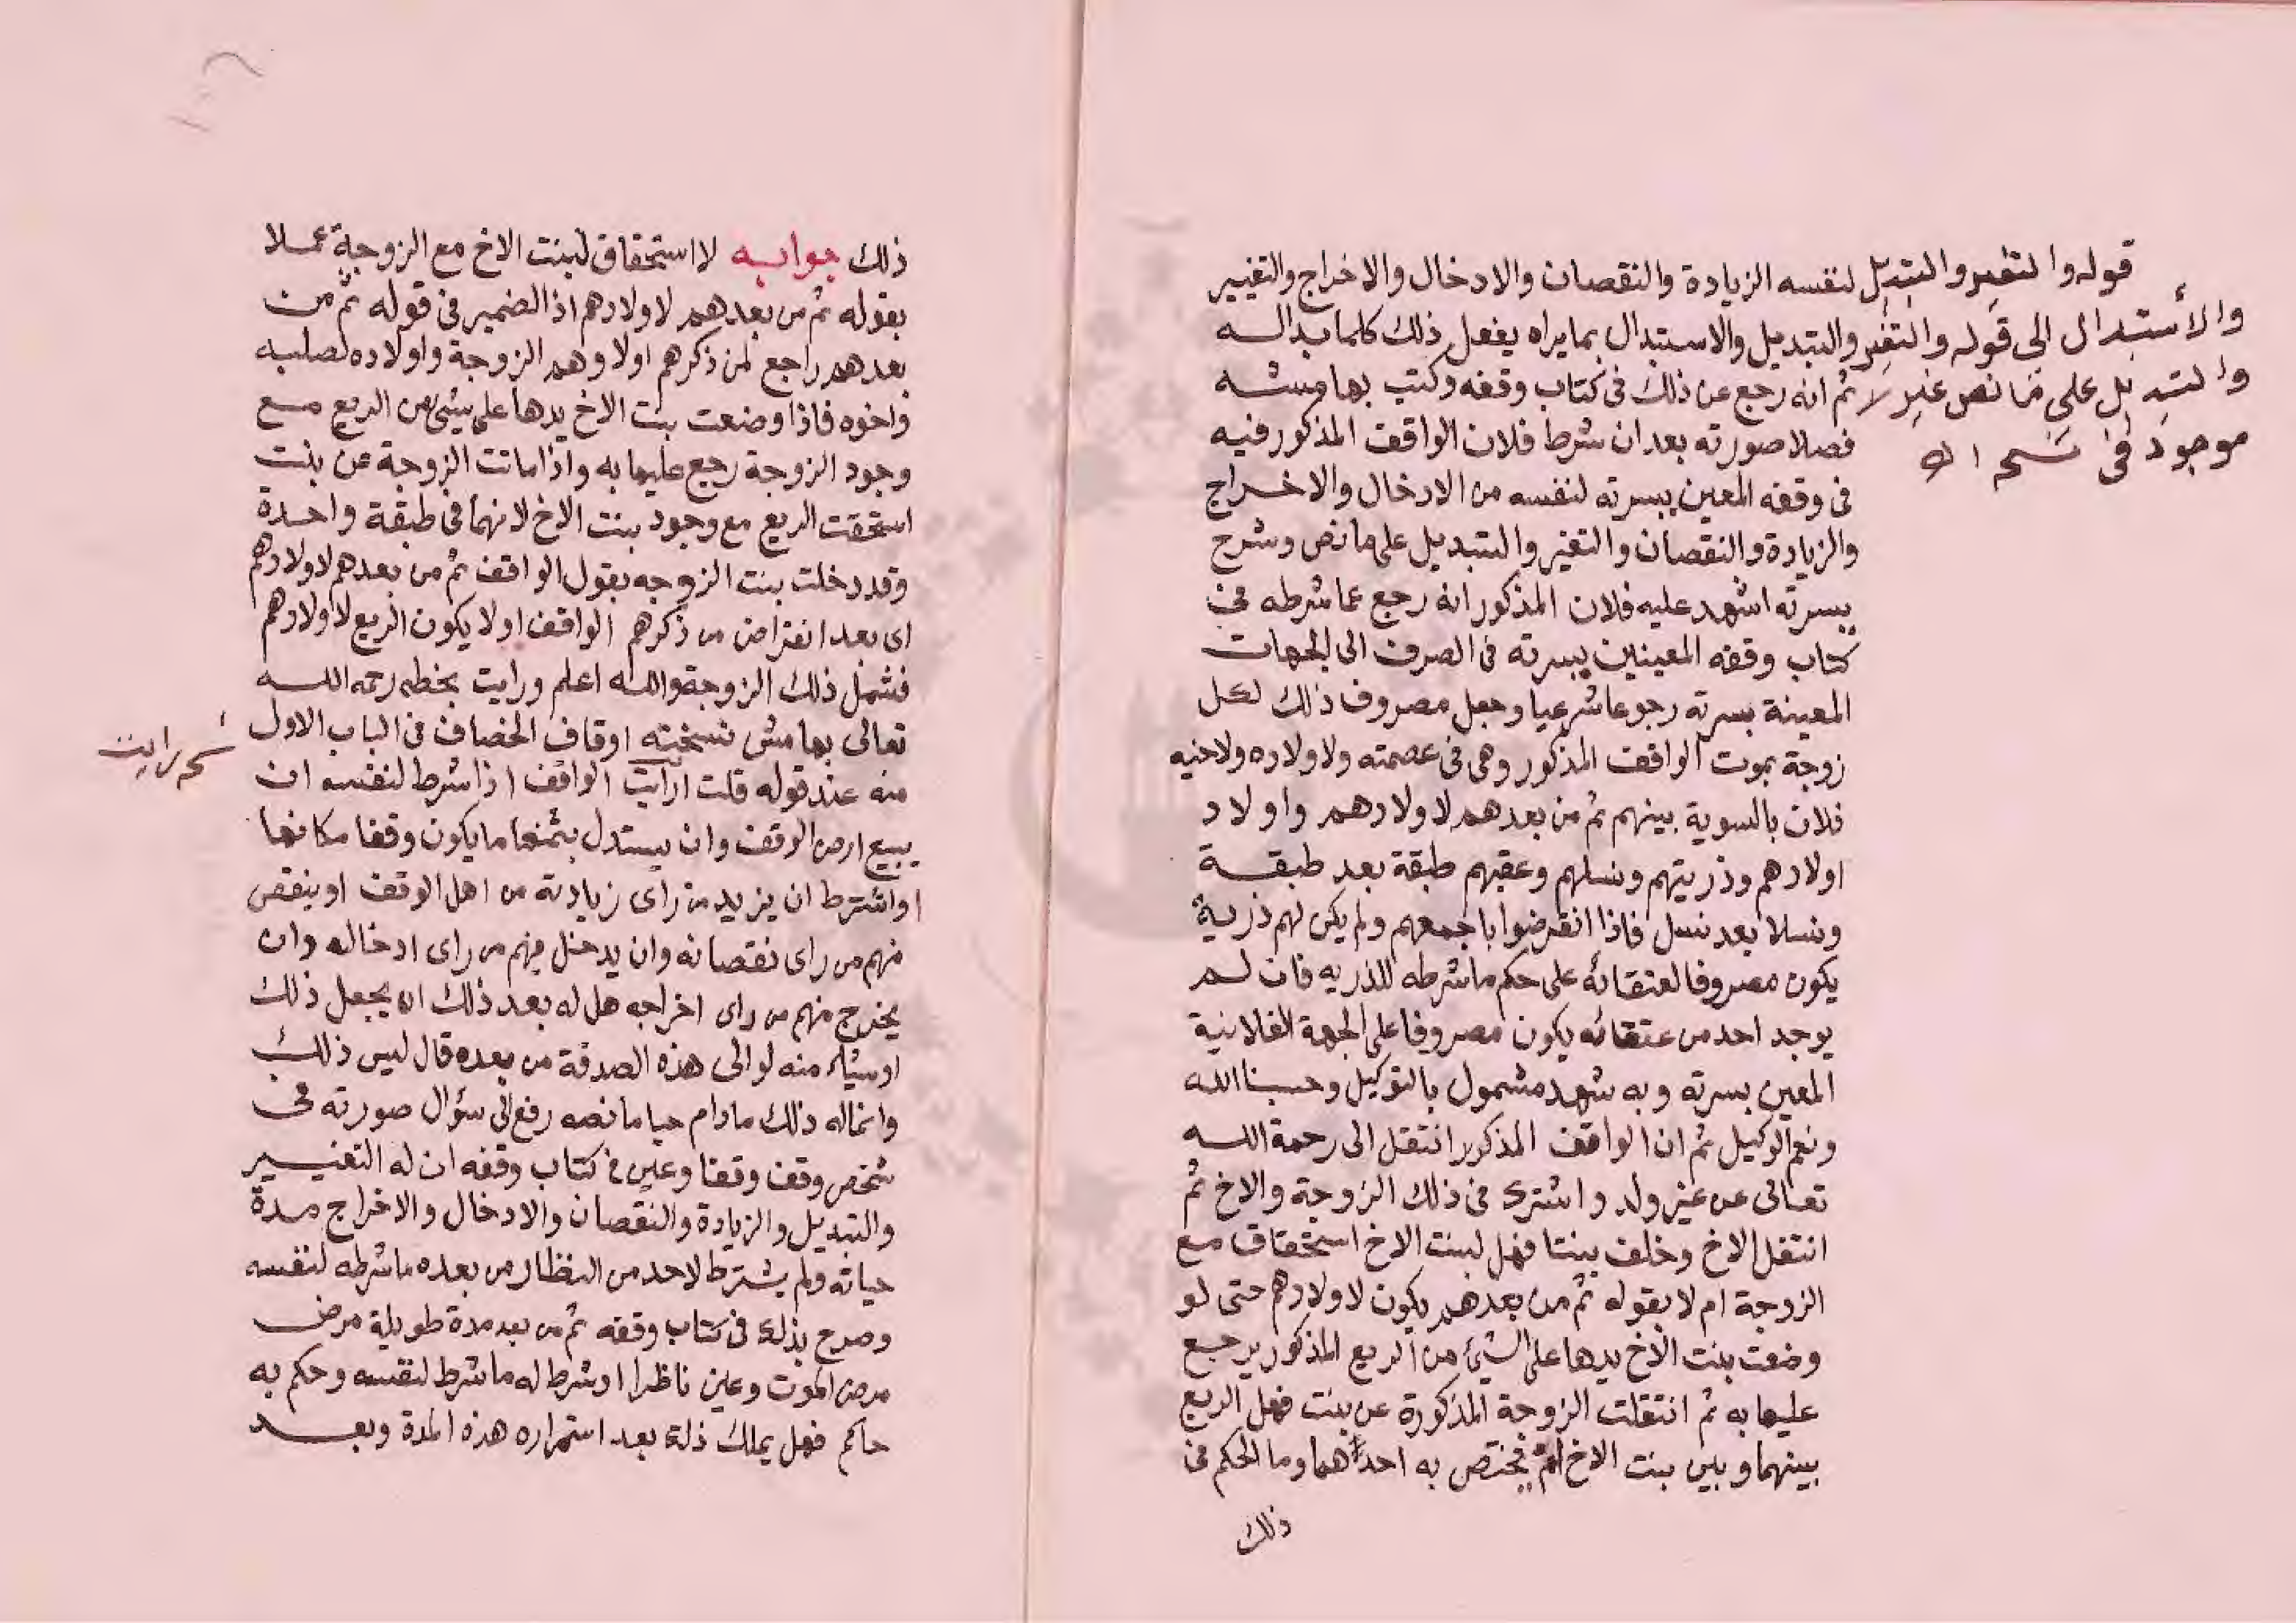 قوله والتغير والتبديل
والأستبدال الى قوله والتغير
والتبديل على ما نص غير لا
موجود فى نسخه اه
لنفسه الزيادة والنقصان والادخال والاخراج والتغيير
والتبديل والاستبدال بما يراه يفعل ذلك كلما بدا له
ثم انه رجع عن ذلك فى كتاب وقفه وكتب بهامشه
فصلا صورته بعد ان شرط فلان الواقف المذكور فيه
فى وقفه المعين بيسرته لنفسه من الادخال والاخراج
والزيادة والنقصان والتغير والتبديل على ما نص وشرح
بيسرته اشهد عليه فلان المذكور انه رجع عما شرطه فى
كتاب وقفه المعينين بيسرته فى الصرف الى الجهات
المعينة بيسرته رجوعا شرعيا وجعل مصروف ذلك لكل
زوجة يموت الواقف المذكور وهى فى عصمته ولاولاده ولاخيه
فلان بالسوية بينهم ثم من بعدهم لاولادهم واولاد
اولادهم وذريتهم ونسلهم وعقبهم طبقة بعد طبقة
ونسلا بعد نسل فاذا انقرضوا باجمعهم ولم يكن لهم ذرية
يكون مصروفا لعتقائه على حكم ما شرطه للذريه فان لم
يوجد احد من عتقائه يكون مصروفا على الجهة الفلانية
المعين بيسرته وبه شهد مشمول بالتوكيل وحسبنا الله
ونعم الوكيل ثم ان الواقف المذكور انتقل الى رحمة الله
تعالى عن غير ولد واشترك فى ذلك الزوجة والاخ ثم
انتقل الاخ وخلف بنتا فهل لبنت الاخ استحقاق مع
الزوجة ام لا بقوله ثم من بعدهم يكون لاولادهم حتى لو
وضعت بنت الاخ يدها على الشيئ من الريع المذكور يرجع
عليها به ثم انتقلت الزوجة المذكورة عن بنت فهل الريع
بينهما وبين بنت الاخ ام يختص به احداهما وما الحكم فى
ذلك
ذلك جوابه لا استحقاق لبنت الاخ مع الزوجة عملا
بقوله ثم من بعدهم لاولادهم اذ الضمير فى قوله ثم من
بعدهم راجع لمن ذكرهم اولا وهم الزوجة واولاده لصلبه
واخوه فاذا وضعت بنت الاخ يدها على شيئ من الريع مع
وجود الزوجة رجع عليها به واذا ماتت الزوجة عن بنت
استحقت الريع مع وجود بنت الاخ لانهما فى طبقة واحدة
وقد دخلت بنت الزوجه بقول الواقف ثم من بعدهم لاولادهم
اى بعد انقراض من ذكرهم الواقف اولا يكون الريع لاولادهم
فشمل ذلك الزوجة والله اعلم ورايت بخطه رحمه الله
تعالى بهامش نسخته اوقاف الخصاف فى الباب الاول
نسخه رايت
منه عند قوله قلت ارايت الواقف اذا شرط لنفسه ان
يبيع ارض الوقف وان يستدل بثمنها ما يكون وقفا مكانها
او اشترط ان يزيد من راى زيادته من اهل الوقف او ينقص
منهم من راى نقصانه وان يدخل فيهم من راى ادخاله وان
يخرج منهم من راى اخراجه هل له بعد ذلك ان يجعل ذلك
او شيئا منه لوالى هذه الصدقة من بعده قال ليس ذلك
وانما له ذلك مادام حيا ما نصه رفع الى سؤال صورته فى
شخص وقف وقفا وعين فى كتاب وقفه ان له التغيير
والتبديل والزيادة والنقصان والادخال والاخراج مدة
حياته ولم يشترط لاحد من النظار من بعده ما شرطه لنفسه
وصرح بذلك فى كتاب وقفه ثم من بعد مدة طويلة مرض
مرض الموت وعين ناظرا وشرط له ما شرط لنفسه وحكم به
حاكم فهل يملك ذلك بعد استمراره هذه المدة وبعد